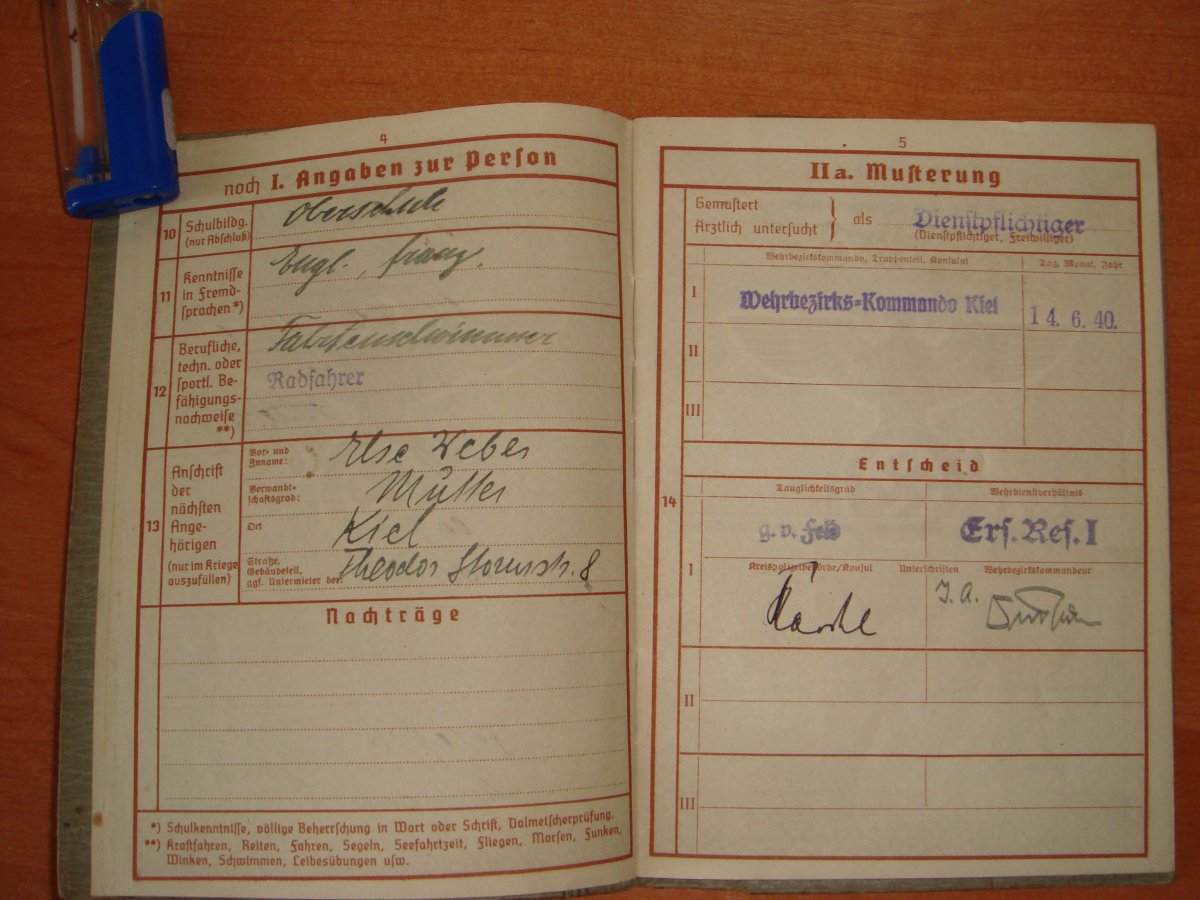 4
noch I. Angaben zur Person
10 Schulbildg. (nur Abschluß)
Oberschule
11 Kenntnisse in Fremdsprachen *)
Engl., franz.
12 Berufliche, techn. oder sportl. Befähigungsnachweise **)
Fahrtenschwimmer
Radfahrer
13 Anschrift der nächsten Angehörigen (nur im Kriege auszufüllen)
Vor- und Zuname:
Else Weber
Verwandtschaftsgrad:
Mutter
Ort
Kiel
Straße, Gebäudeteil, ggf. Untermieter bei:
Theodor Stormstr. 8
Nachträge
*) Schulkenntnisse, völlige Beherrschung in Wort oder Schrift, Dolmetscherprüfung.
**) Kraftfahren, Reiten, Fahren, Segeln, Seefahrtzeit, Fliegen, Morsen, Funken,
Winken, Schwimmen, Leibesübungen usw.
5
IIa. Musterung
Gemustert
Ärztlich untersucht } als Dienstpflichtiger
(Dienstpflichtiger, Freiwilliger)
Wehrbezirkskommando, Truppenteil, Konsulat
Tag, Monat, Jahr
I Wehrbezirks-Kommando Kiel 14.6.40.
II
III
Entscheid
14
Tauglichkeitsgrad Wehrdienstverhältnis
g. v. Feld Ers. Res. I
I
Kreispolizeibehörde/Konsul Unterschriften Wehrbezirkskommandeur
J. A.
II
III